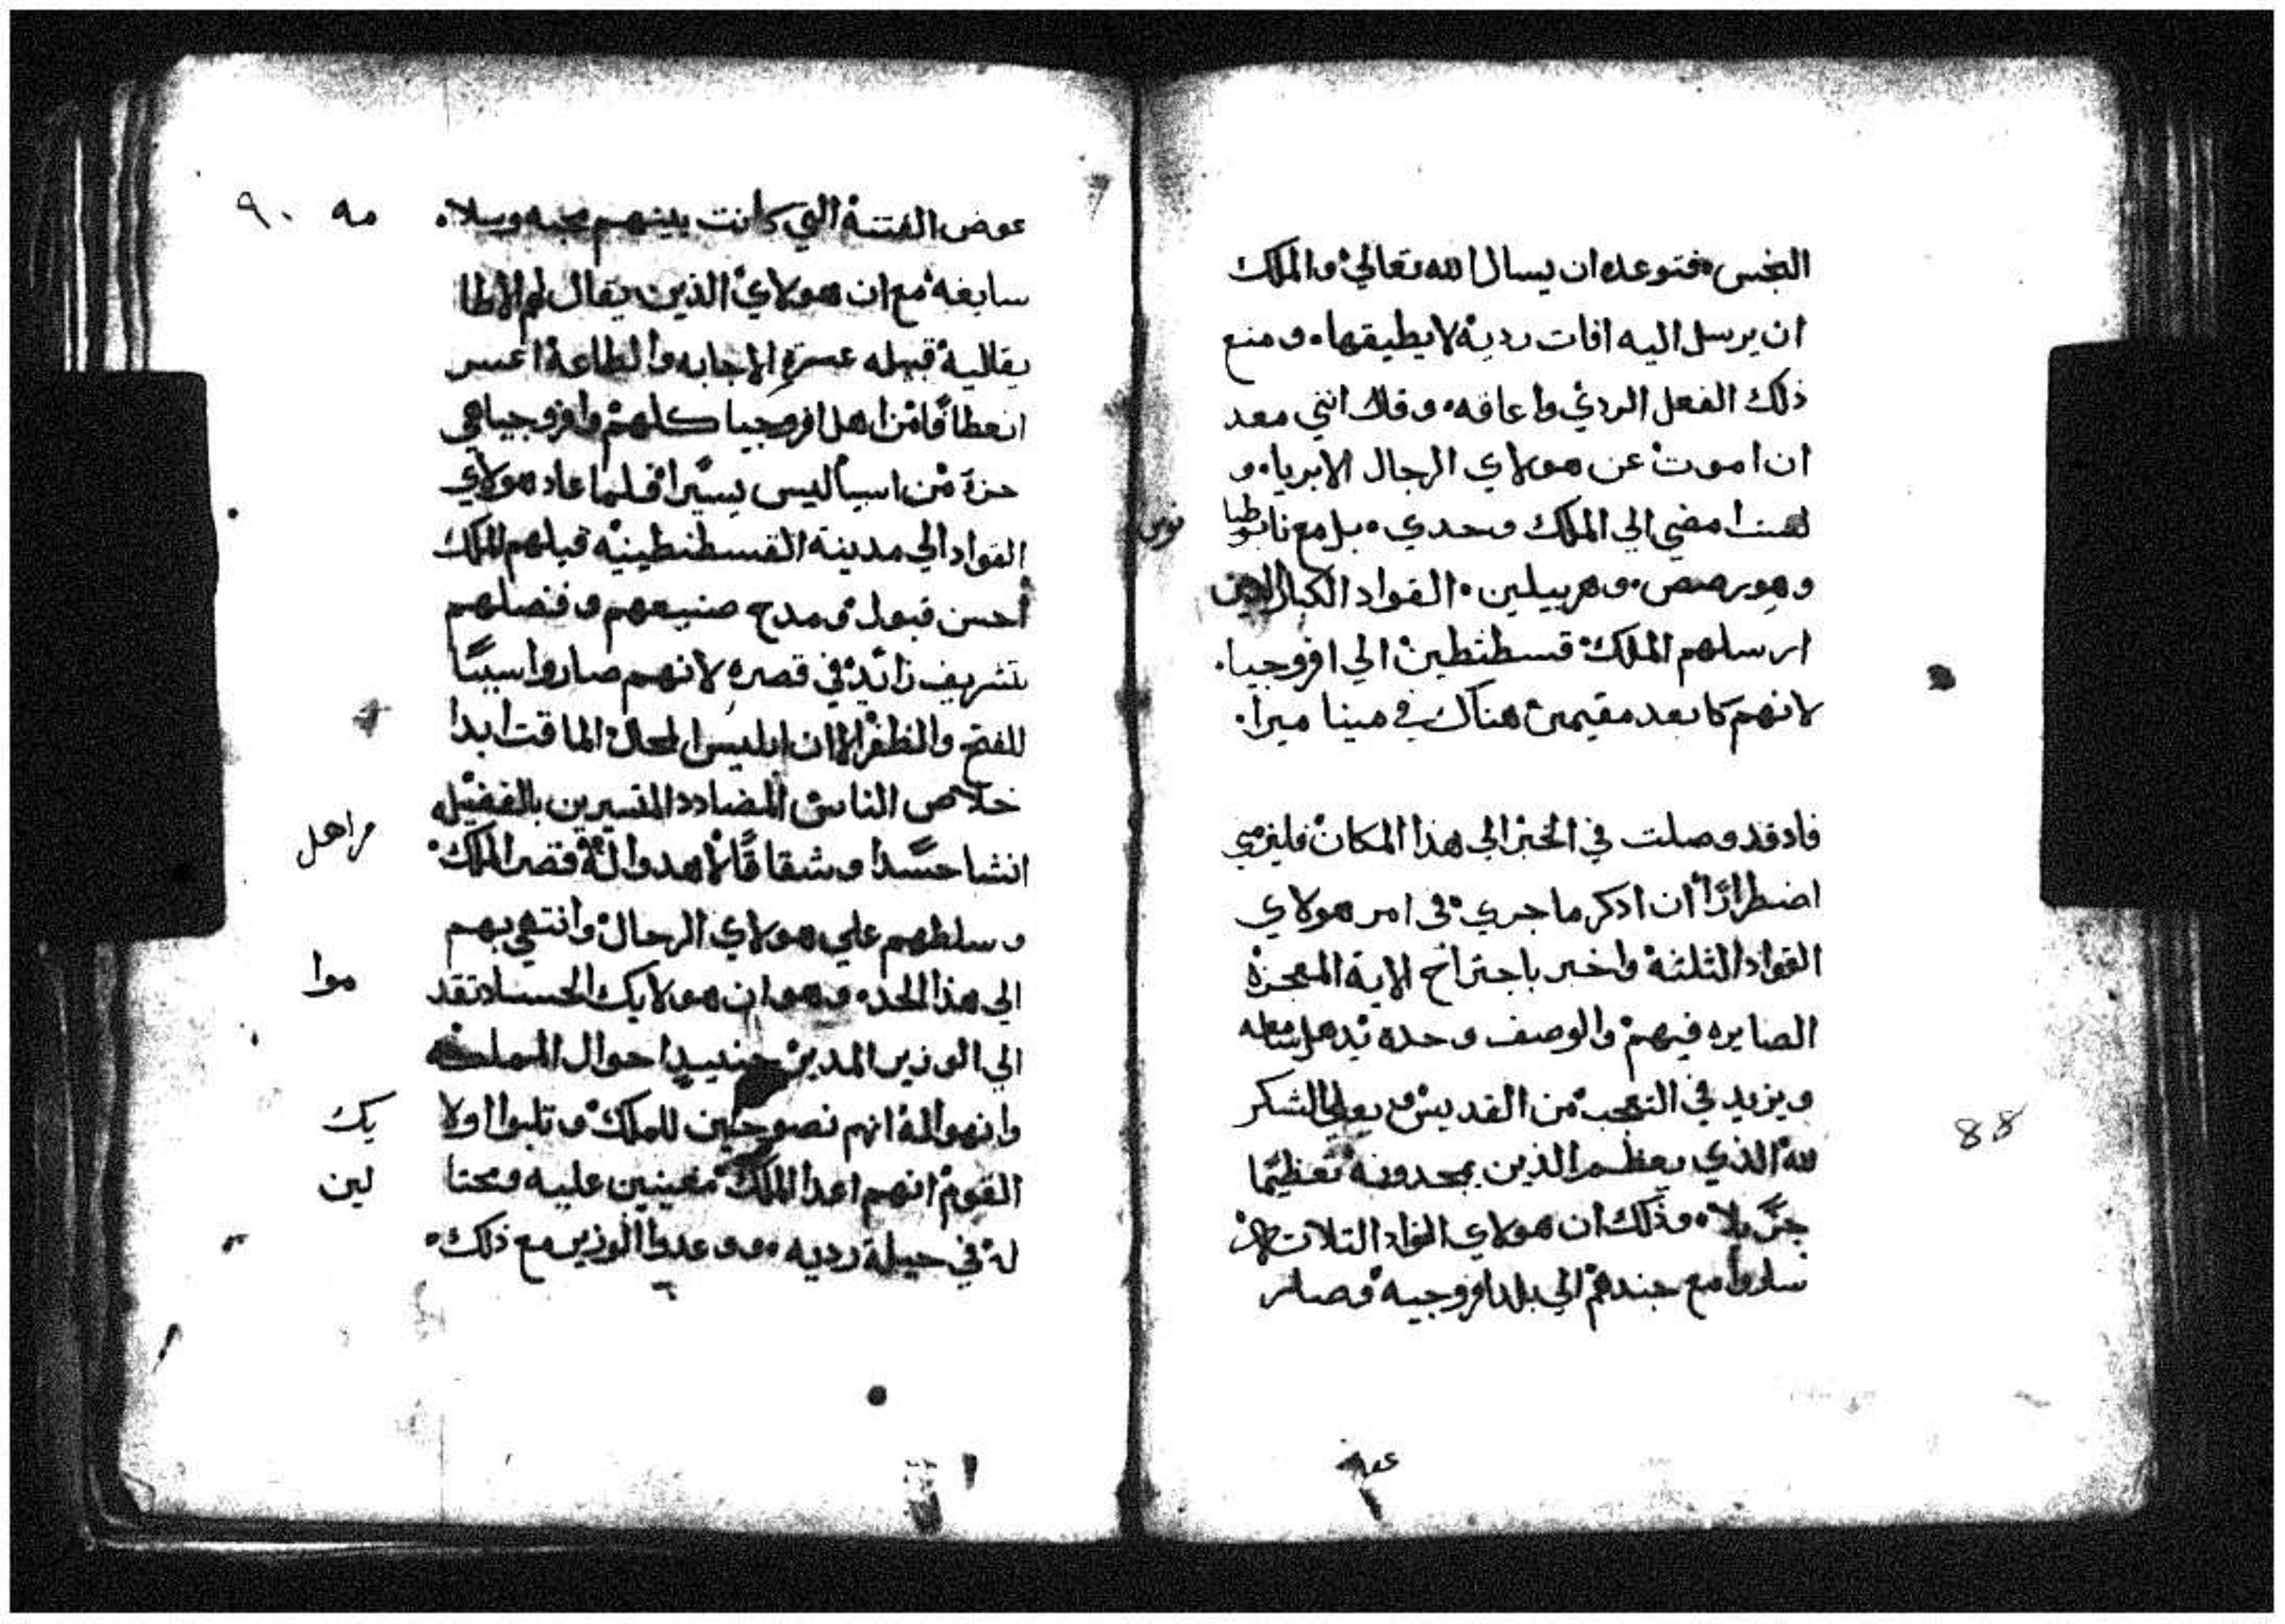 النجس فتوعده ان يسال الله تعالي والملك
ان يرسل اليه افات رديه لا يطيقها ومنع
ذلك الفعل الردي واعاقه وقال انني معد
ان اموت عن هولاي الرجال الابريا و
لست امضي الي الملك وحدي بل مع
وهو القواد الكبار الدين
ارسلهم الملك قسطنطين الي افروجيا
لانهم كا بعد مقيمين هناك في مينا ميرا
فاد قد وصلت في الخبر الي هذا المكان فليزمني
اضطرارًا ان ادكر ما جري في امر هولاي
القواد الثلثة واخبر باجتراح الاية المعجزة
الصايره فيهم والوصف وحده يدهل
ويزيد في التعجب من القديس الشكر
لله الذي يعظم الذين يمجدونه تعظيمًا
جزيلا وذلك ان هولاي القواد التلات
ساروا مع جندهم الي بلد افروجيه فصار
88
عوض الفتنة التي كانت بينهم محبه وسلا مه ٩٠
سابغه مع ان هولاي الذين يقال لهم
يقاليه قبيله عسرة الاجابه والطاعة اعسر
انعطافًا من اهل افروجيا كلهم وافروجيا هي
من اسيا ليس يسيرا فلما عاد هولاي
القواد الي مدينة القسطنطينيه قبلهم الملك
احسن قبول ومدح صنيعهم وفضلهم
بتشريف زائد في قصره لانهم صاروا سببًا
للفتح والظفر الا ان ابليس المحال الماقت ابدا
خلاص الناس المضادد المتسيرين بالفضيله
انشا حسدا وشقاقًا لاهد والة قصر الملك مراهل
وسلطهم علي هولاي الرجال وانتهي بهم
الي هذا الحد وهو ان هولايك الحساد تقد موا
الي الوزير المدبر حينيد احوال المملكه
وانهوا له انهم نصوحين للملك وتلبوا اولا يك
القوم انهم اعدا الملك مغيبين عليه ومحتا لين
له في حيلة رديه ووعدوا الوزير مع ذلك